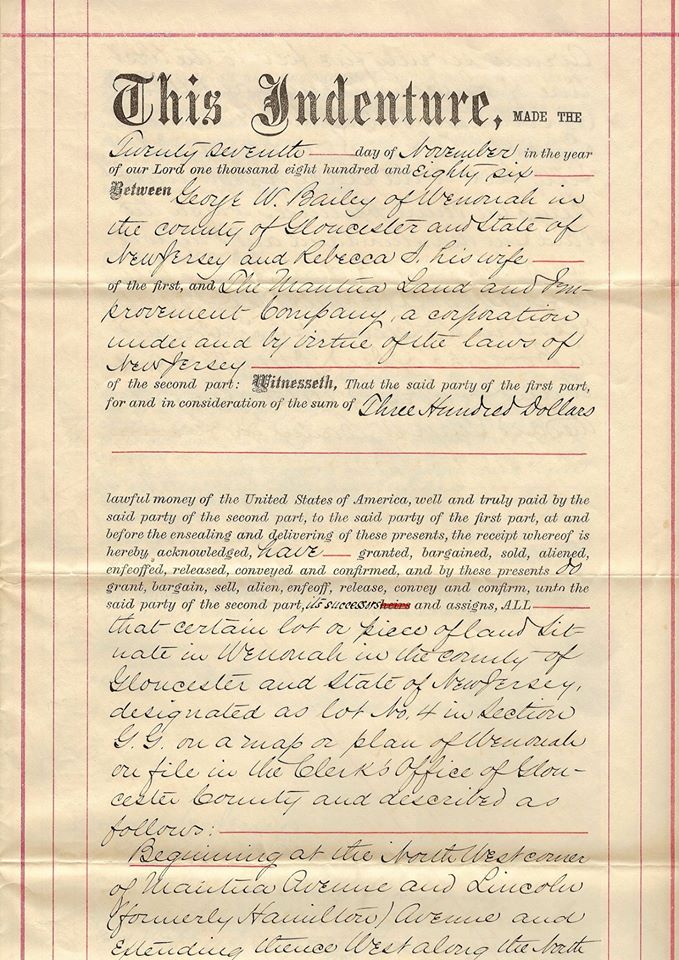 This Indenture, MADE THE
Twenty seventh day of November in the year
of our Lord one thousand eight hundred and eighty six
Between George W. Bailey of Wenonah in
the county of Gloucester and State of
New Jersey and Rebecca S. his wife
of the first, and The Mantua Land and Im-
provement Company, a corporation
under and by virtue of the laws of
New Jersey
of the second part: Witnesseth, That the said party of the first part,
for and in consideration of the sum of Three Hundred Dollars
lawful money of the United States of America, well and truly paid by the
said party of the second part, to the said party of the first part, at and
before the ensealing and delivering of these presents, the receipt whereof is
hereby acknowledged, have granted, bargained, sold, aliened,
enfeoffed, released, conveyed and confirmed, and by these presents do
grant, bargain, sell, alien, enfeoff, release, convey and confirm, unto the
said party of the second part, its successors heirs and assigns, ALL
that certain lot or piece of land Sit-
uate in Wenonah in the county of
Gloucester and State of New Jersey,
designated as lot No. 4 in Section
G.G. on a map or plan of Wenonah
on file in the Clerk's Office of Glou-
cester County and described as
follows:
Beginning at the North West corner
of Mantua Avenue and Lincoln
(formerly Hamilton) Avenue and
Extending thence West along the North